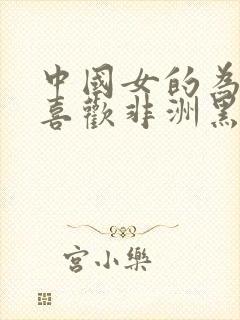 中國女的為
喜歡非洲黑
宮小樂